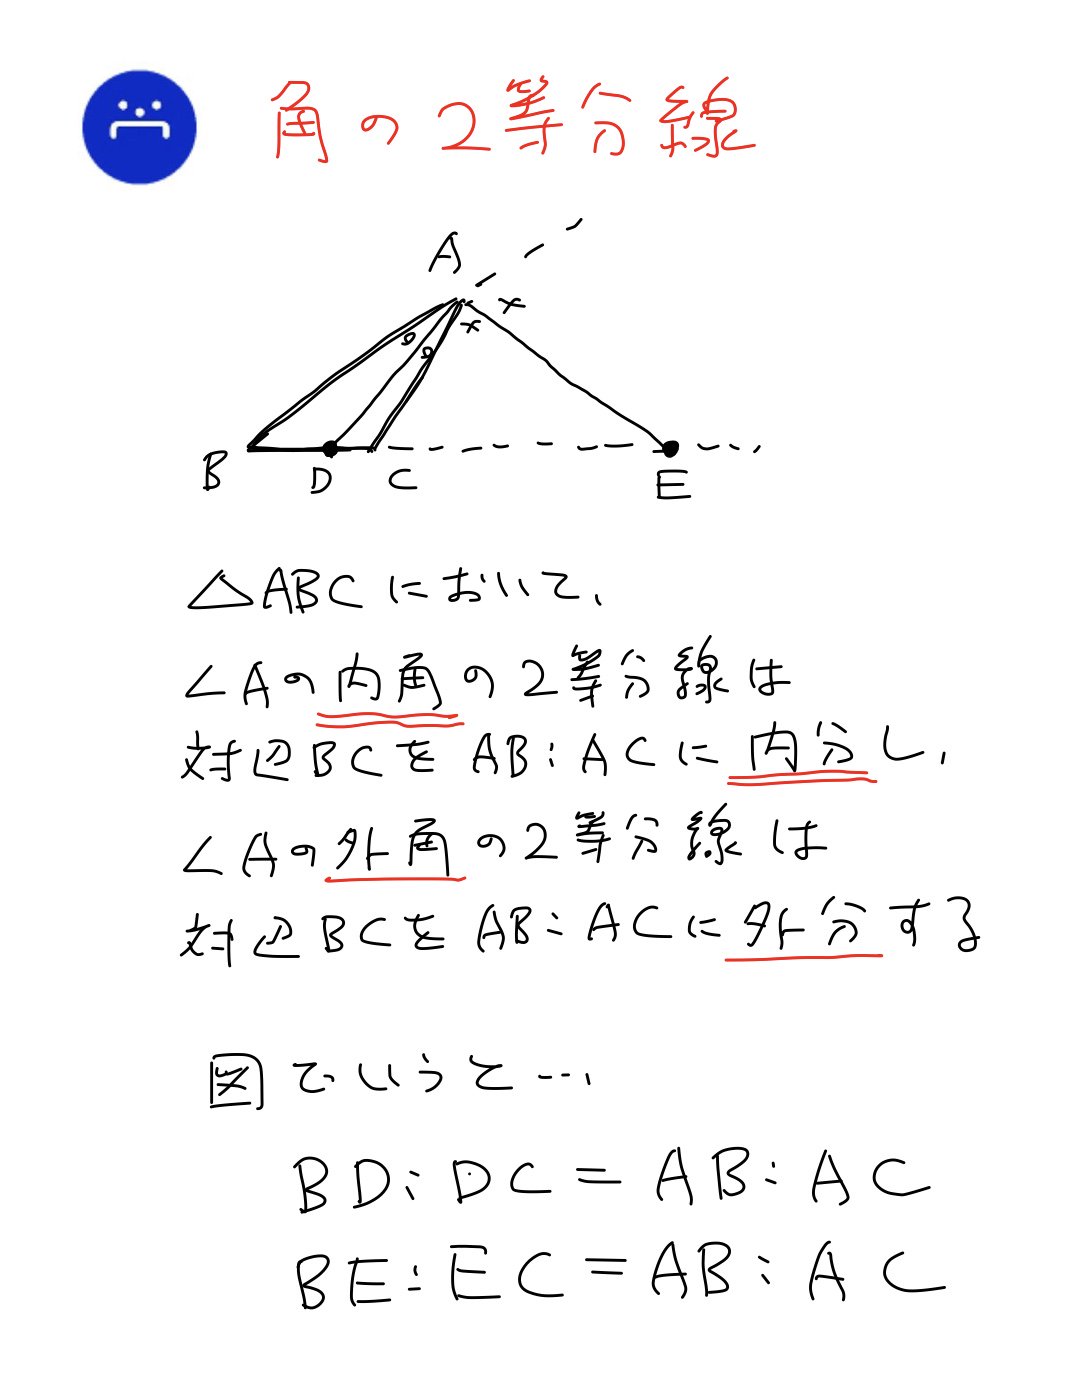 角の2等分線
A
B D C E
△ABCにおいて、
∠Aの内角の2等分線は
対辺BCをAB:ACに内分し、
∠Aの外角の2等分線は
対辺BCをAB:ACに外分する
図でいうと…、
BD:DC=AB:AC
BE:EC=AB:AC